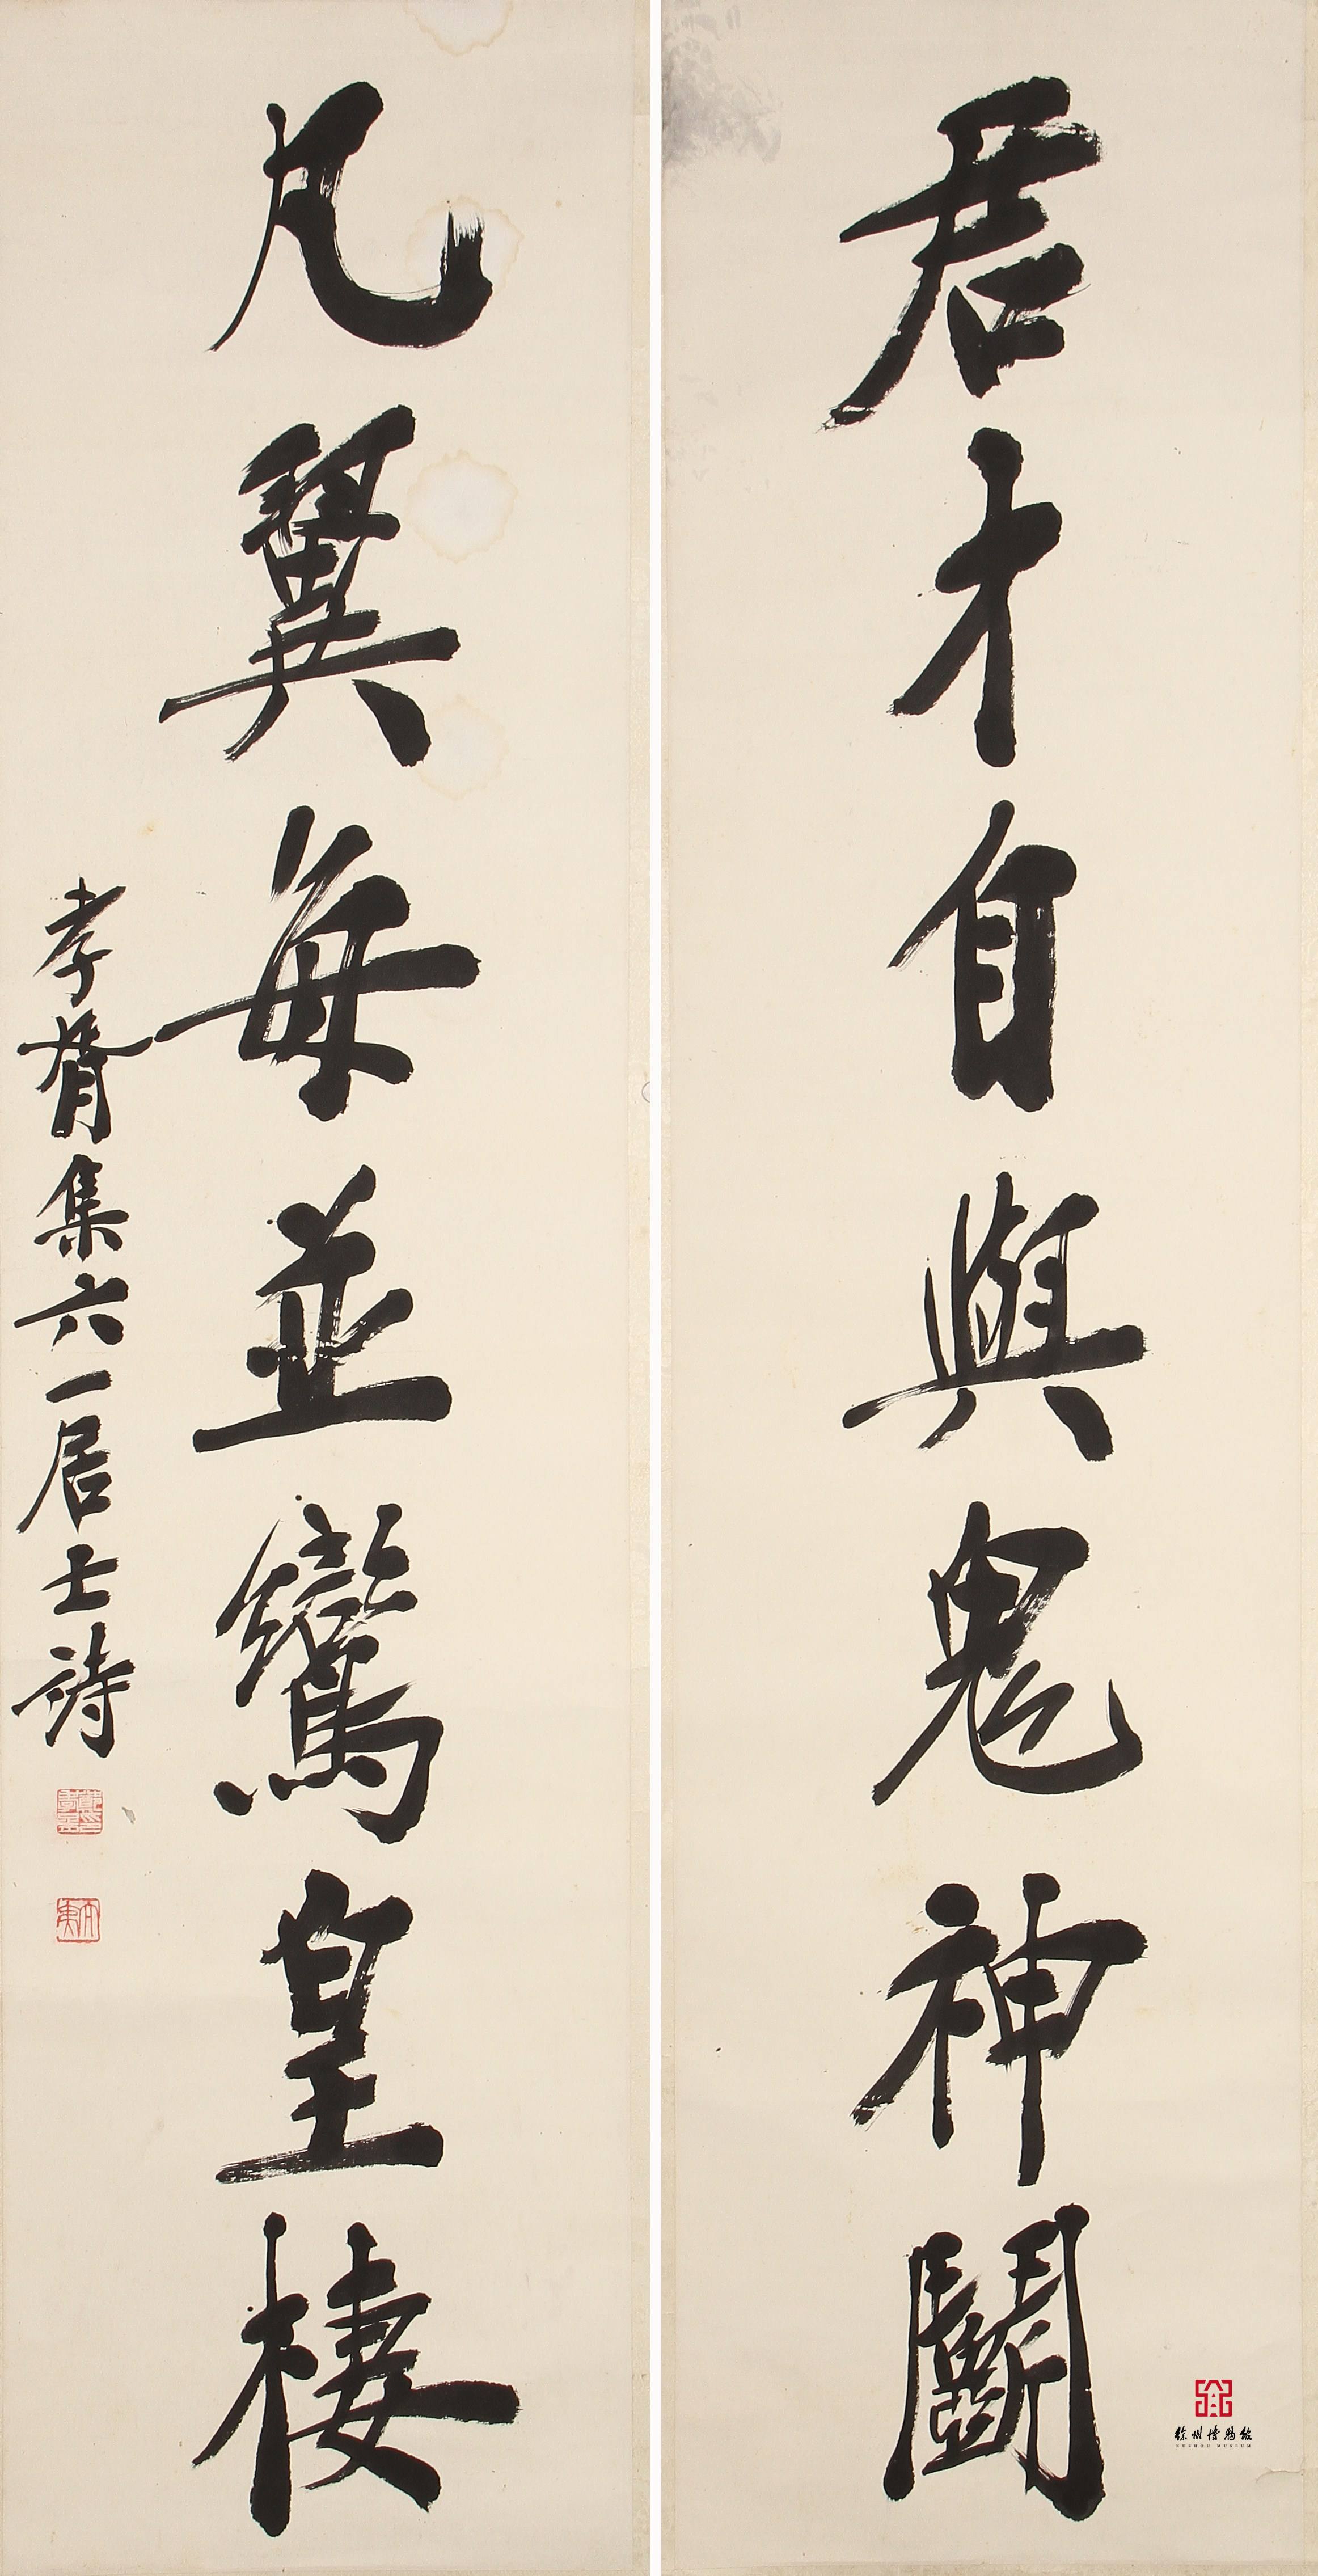 君才自與鬼神鬭
凡翼每並鸞皇棲
孝胥集六一居士詩
徐州博物館
XUZHOU MUSEUM